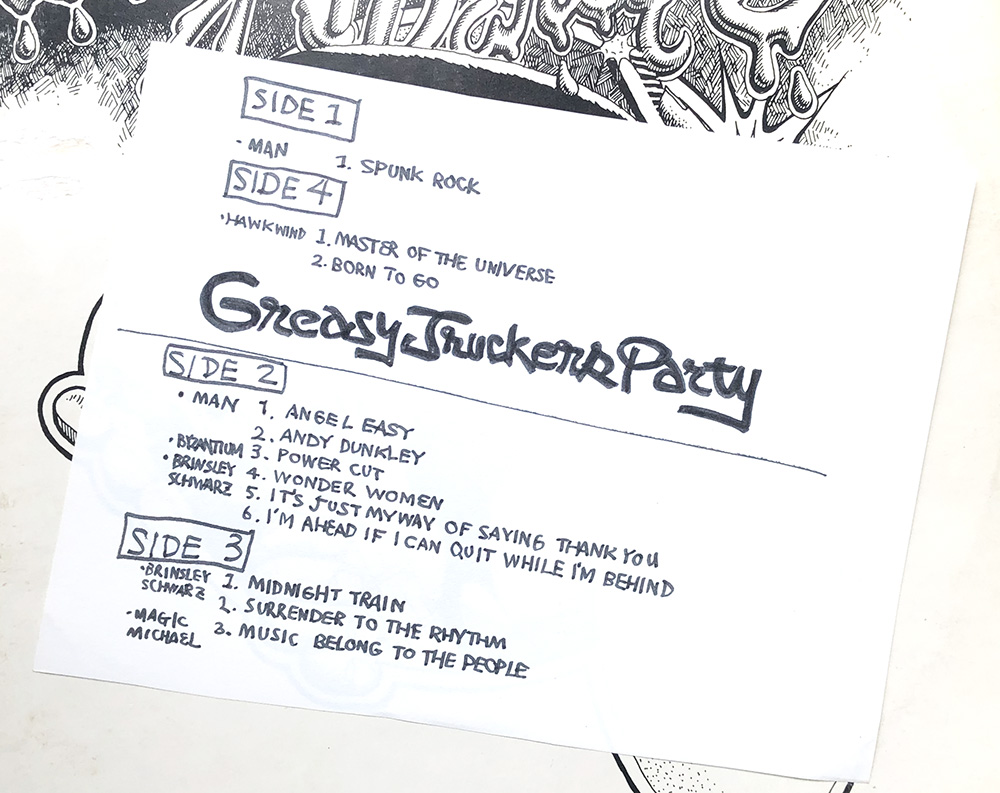 SIDE 1
· MAN 1. SPUNK ROCK
SIDE 4
· HAWKWIND 1. MASTER OF THE UNIVERSE
2. BORN TO GO
Greasy Truckers Party
SIDE 2
· MAN 1. ANGEL EASY
2. ANDY DUNKLEY
· BYZANTIUM 3. POWER CUT
· BRINSLEY SCHWARZ 4. WONDER WOMEN
5. IT'S JUST MY WAY OF SAYING THANK YOU
6. I'M AHEAD IF I CAN QUIT WHILE I'M BEHIND
SIDE 3
· BRINSLEY SCHWARZ 1. MIDNIGHT TRAIN
2. SURRENDER TO THE RHYTHM
· MAGIC MICHAEL 3. MUSIC BELONG TO THE PEOPLE